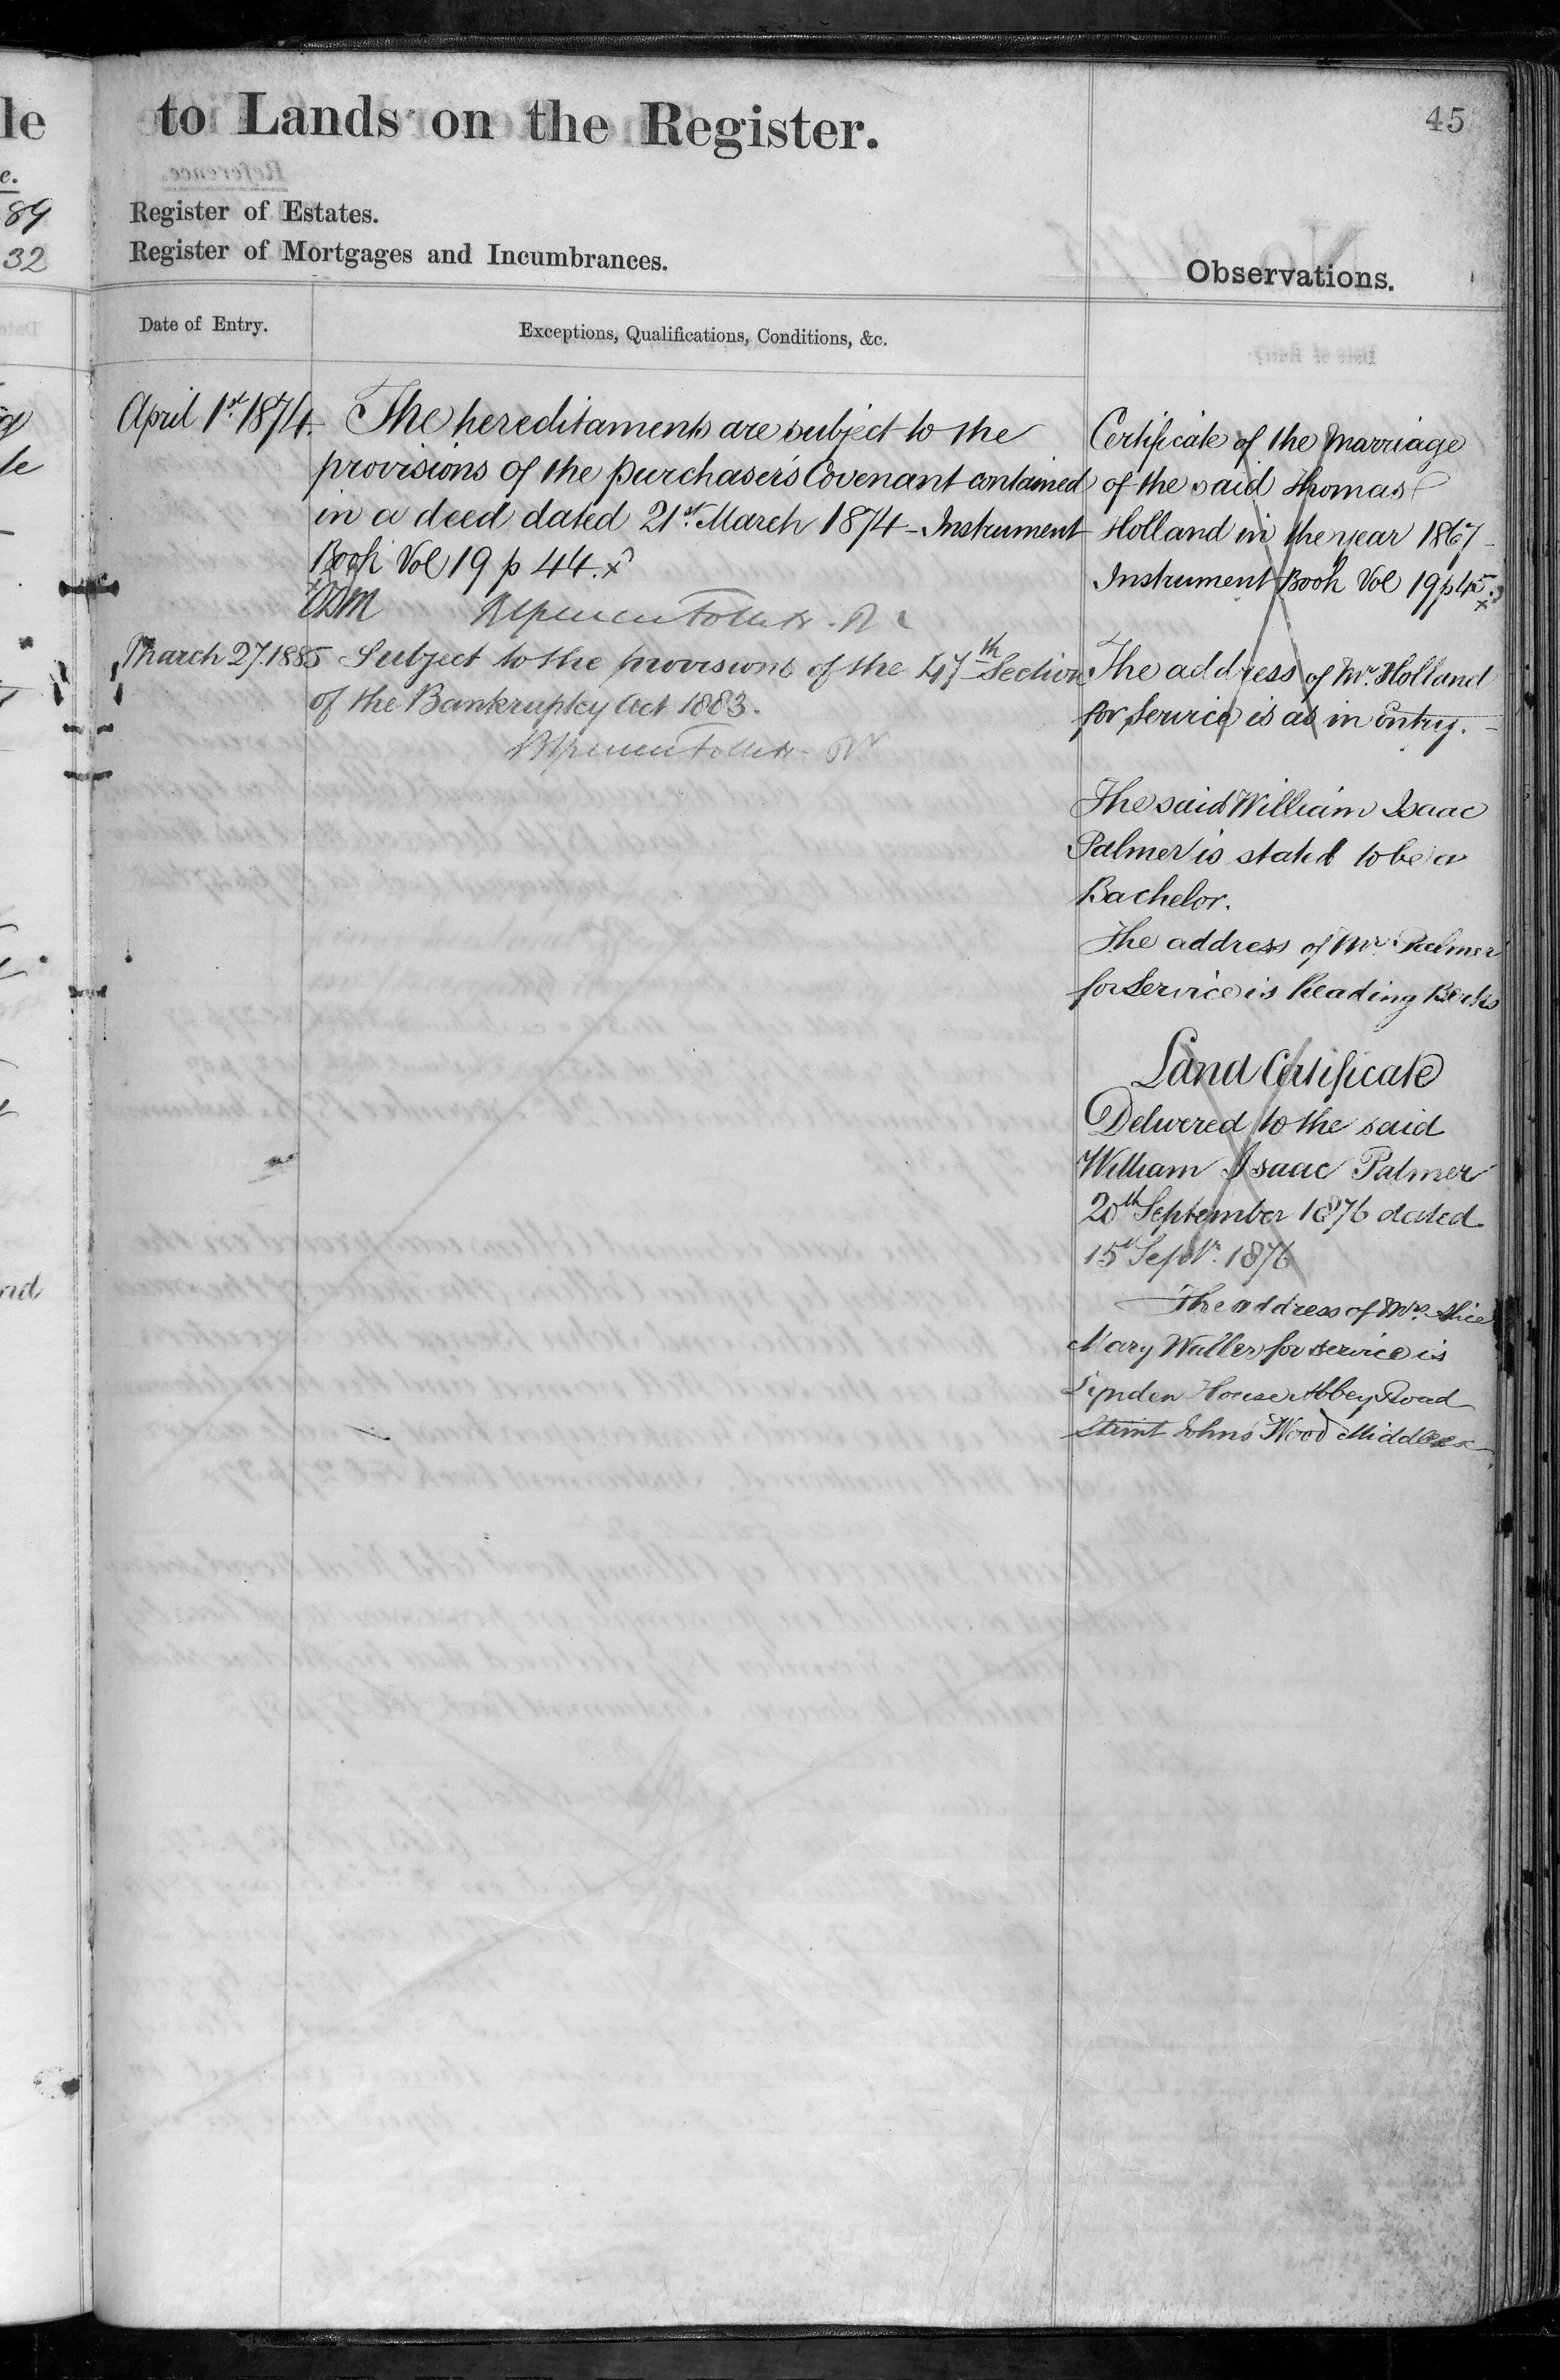 le
to Lands on the Register.
45
e.
89
32
Register of Estates.
Register of Mortgages and Incumbrances.
Observations.
Date of Entry.
Exceptions, Qualifications, Conditions, &c.
April 1st 1874. The hereditaments are subject to the
provisions of the purchaser's Covenant contained
in a deed dated 21st March 1874 - Instrument
Book Vol 19 p 44. x
March 27. 1885 Subject to the provisions of the 47th Section
of the Bankruptcy Act 1883.
Certificate of the Marriage
of the said Thomas
Holland in the year 1867
Instrument Book Vol 19 p 45.
x
The address of Mr. Holland
for Service is as in Entry.
The said William Isaac
Palmer is stated to be a
Bachelor.
The address of Mr. Palmer
for Service is Reading Berks
Land Certificate
Delivered to the said
William Isaac Palmer
20th September 1876 dated
15th Septr. 1876
The address of Mrs. Alice
Mary Waller for service is
Lynden House Abbey Road
Saint Johns Wood Middlesex